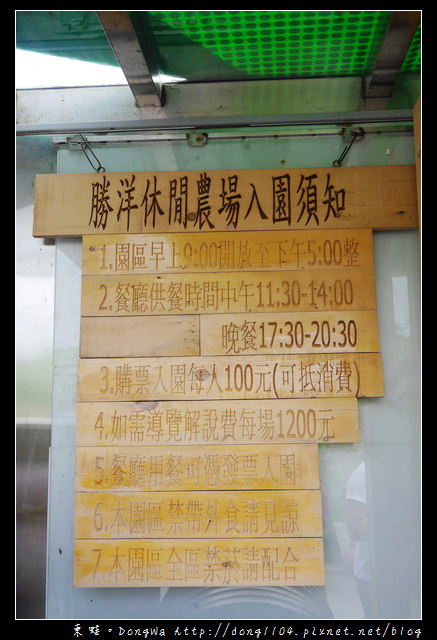 勝洋休閒農場入園須知
1.園區早上9:00開放至下午5:00整
2.餐廳供餐時間中午11:30-14:00
晚餐17:30-20:30
3.購票入園每人100元(可抵消費)
4.如需導覽解說費每場1200元
5.餐廳用餐可憑發票入園
6.本園區禁帶外食請見諒
7.本園區全區禁菸請配合
東蛙。DongWa http://dong1104.pixnet.net/blog